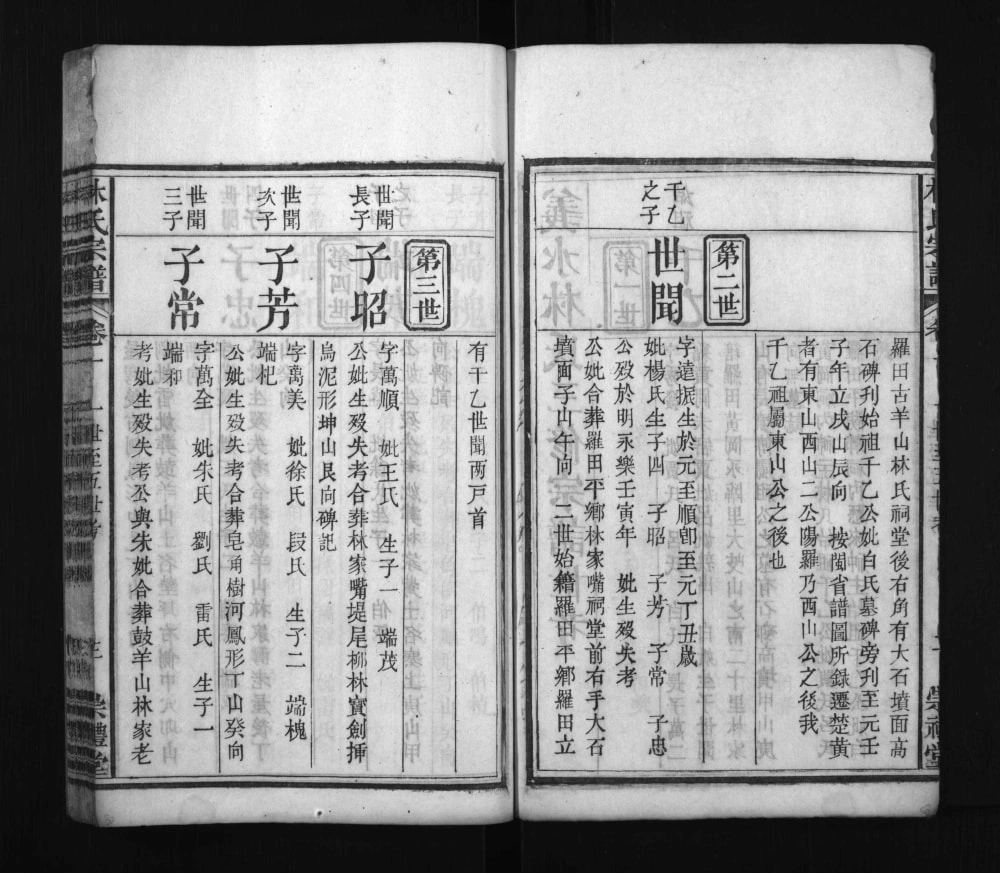 羅田古羊山林氏祠堂後右角有大石墳面高
石碑刋始祖千乙公妣白氏墓碑旁刋至元壬
子年立戌山辰向　按閩省譜圖所錄遷楚黃
者有東山西山二公陽羅乃西山公之後我
千乙祖屬東山公之後也
第二世
千乙之子
世聞
字遠振生於元至順卽至元丁丑歲
妣楊氏生子四　子昭　子芳　子常　子忠
公歿於明永樂壬寅年　妣生歿失考
公妣合葬羅田平鄉林家嘴祠堂前右手大石
墳面子山午向　二世始籍羅田平鄉羅田立
有千乙世聞两戸首
第三世
世聞長子
子昭
字萬順　妣王氏　生子一　端茂
公妣生歿失考合葬林家嘴堤尾柳林寶劍挿
烏泥形坤山艮向碑記
世聞次子
子芳
字萬美　妣徐氏　段氏　生子二　端槐
端杞
公妣生歿失考合葬皂角樹河鳳形丁山癸向
世聞三子
子常
字萬全　妣朱氏　劉氏　雷氏　生子一
端和
考妣生歿失考公與朱妣合葬鼓羊山林家老
林氏宗譜
卷一
一世至五世考
三
崇禮堂